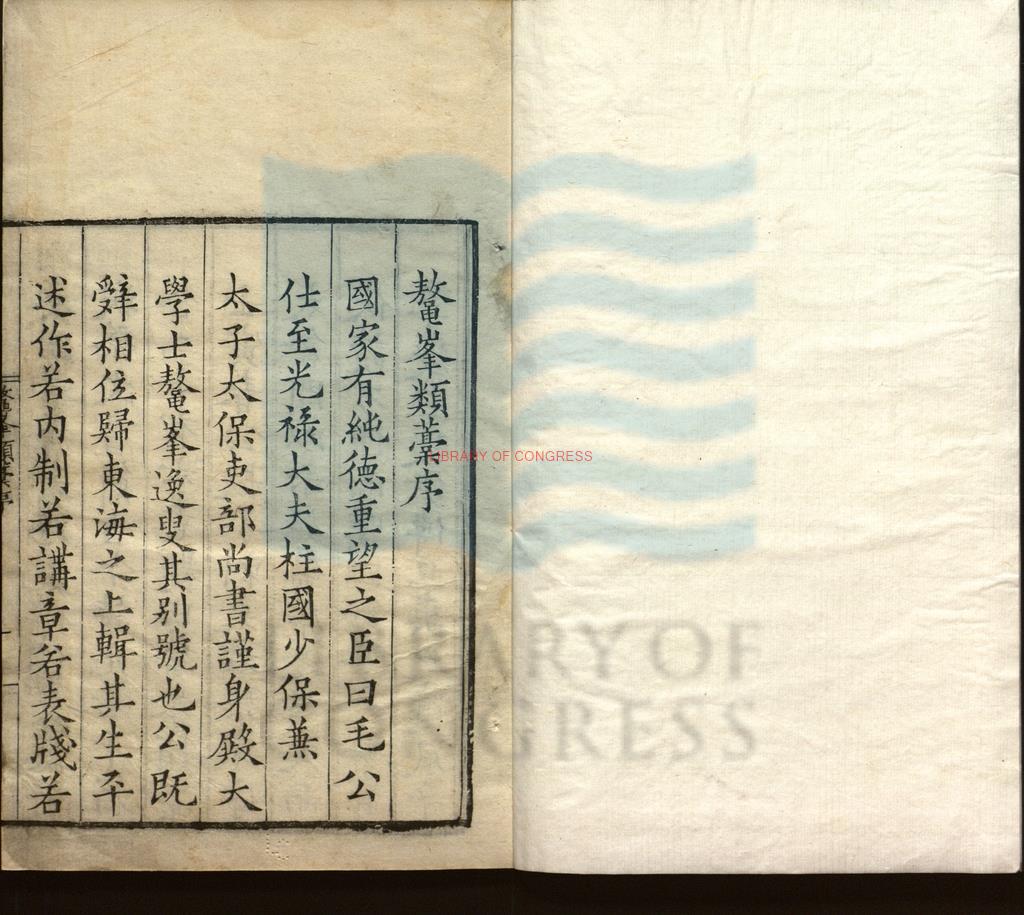 鼇峯類藁序
國家有純德重望之臣曰毛公
仕至光祿大夫柱國少保兼
太子太保吏部尚書謹身殿大
學士鼇峯逸叟其别號也公既
辤相位歸東海之上輯其生平
述作若内制若講章若表牋若
鼇峯類藁序
LIBRARY OF CONGRESS
LIBRARY OF
CONGRESS